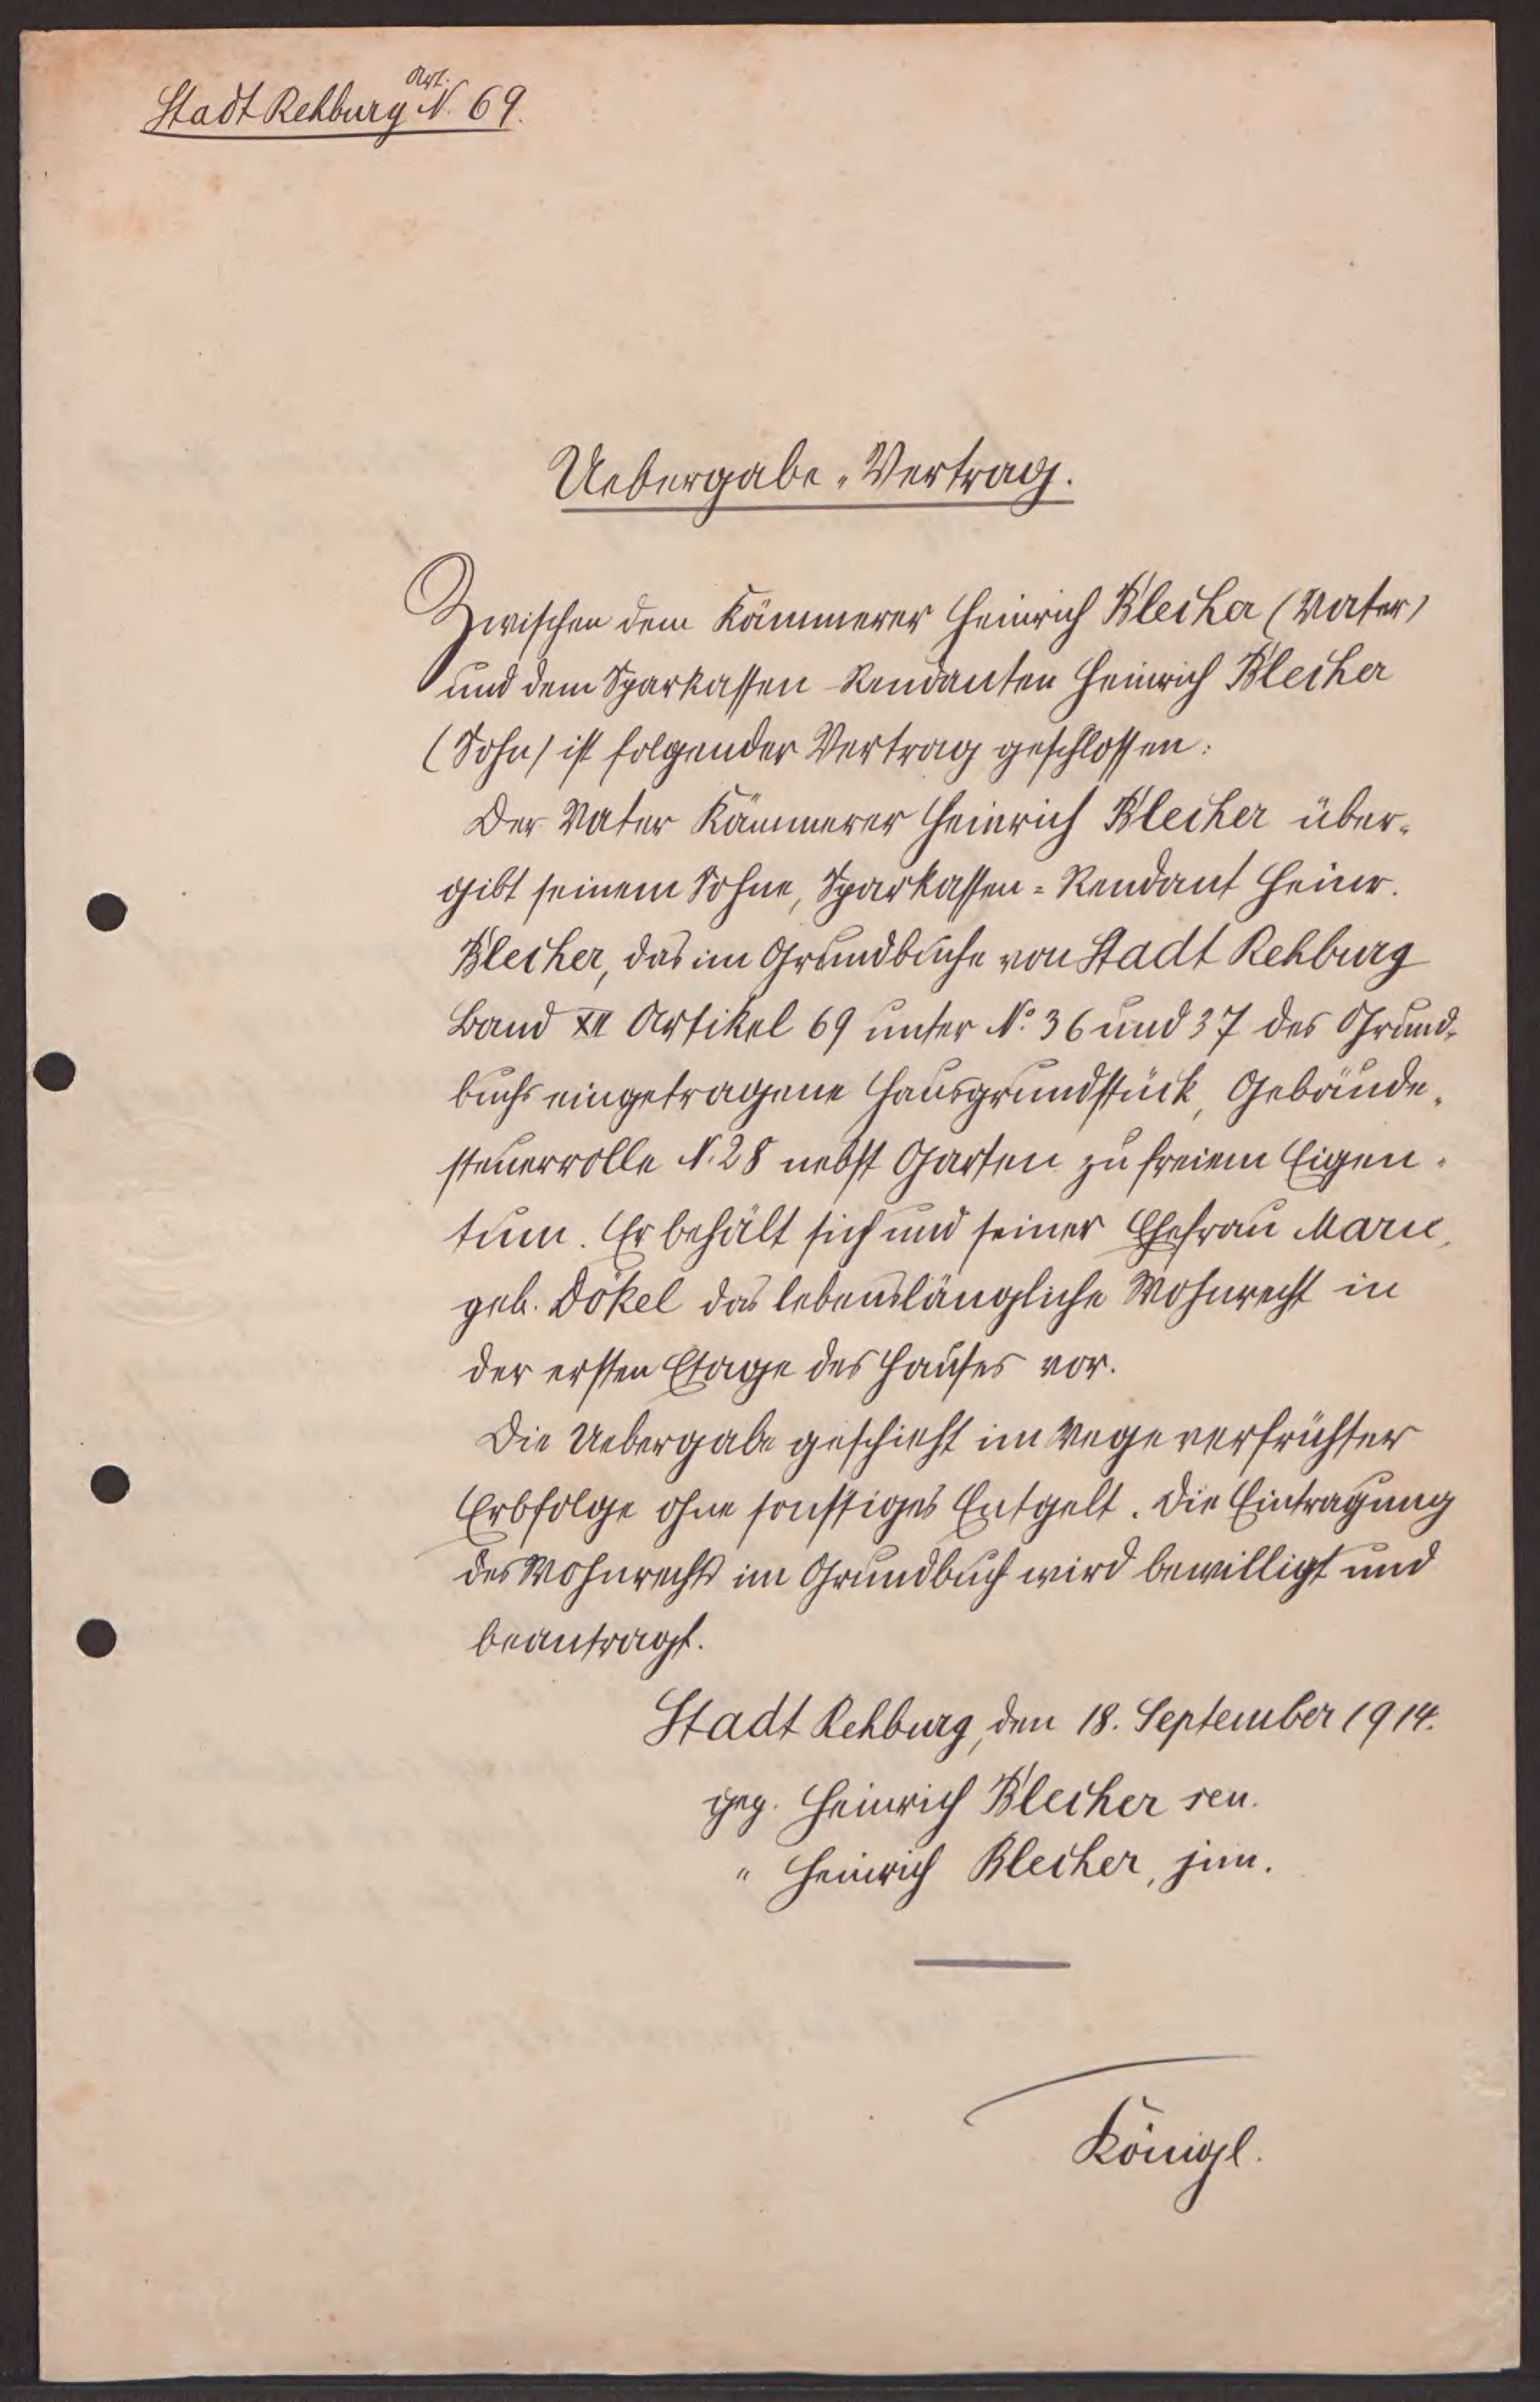 Stadt Rehburg Art. N. 69.
Uebergabe-Vertrag.
Zwischen dem Kämmerer Heinrich Blecher (Vater)
und dem Sparkassen-Rendanten Heinrich Blecher
(Sohn) ist folgender Vertrag geschlossen:
Der Vater Kämmerer Heinrich Blecher über-
gibt seinem Sohne, Sparkassen-Rendant Heinr.
Blecher, das im Grundbuche von Stadt Rehburg
Band XII Artikel 69 unter No. 36 und 37 des Grund-
buchs eingetragene Hausgrundstück, Gebäude-
steuerrolle N. 28 nebst Garten zu freiem Eigen-
tum. Er behält sich und seiner Ehefrau Marie,
geb. Dökel das lebenslängliche Wohnrecht in
der ersten Etage des Hauses vor.
Die Uebergabe geschieht im Wege verfrühter
Erbfolge ohne sonstiges Entgelt. Die Eintragung
des Wohnrechts im Grundbuch wird bewilligt und
beantragt.
Stadt Rehburg, den 18. September 1914.
gez. Heinrich Blecher sen.
" Heinrich Blecher, jun.
Königl.